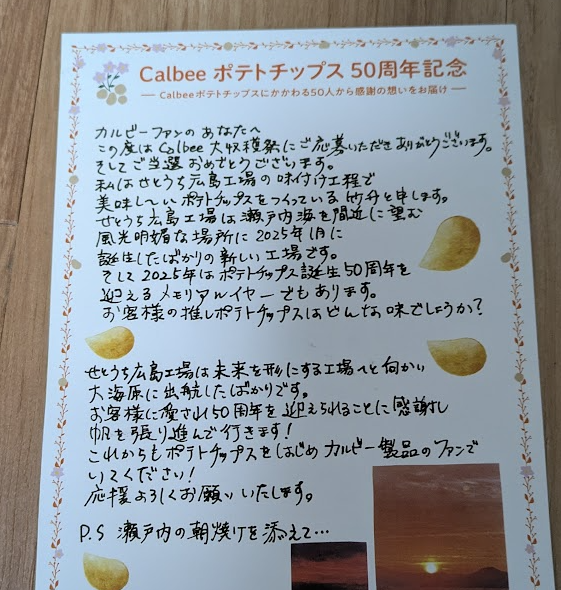 Calbee ポテトチップス 50周年記念
Calbeeポテトチップスにかかわる50人から感謝の想いをお届け
カルビーファンの あなたへ
この度は Calbee 大収穫祭にご応募いただき ありがとうございます。
そしてご当選 おめでとうございます。
私は せとうち広島工場の 味付け工程で
美味し〜い ポテトチップスをつくっている 竹分と申します。
せとうち広島工場は 瀬戸内海を間近に望む
風光明媚な場所に 2025年1月に
誕生したばかりの新しい工場です。
そして 2025年は ポテトチップス誕生50周年を
迎える メモリアルイヤーでもあります。
お客様の推しポテトチップスは どんな味でしょうか?
せとうち広島工場は 未来を形にする工場へと向かい
大海原に出航したばかりです。
お客様に愛され50周年を 迎えられることに感謝し
帆を張り進んで行きます!
これからも ポテトチップスをはじめ カルビー製品の ファンで
いてください!
応援よろしくお願いいたします。
P.S 瀬戸内の朝焼けを添えて…